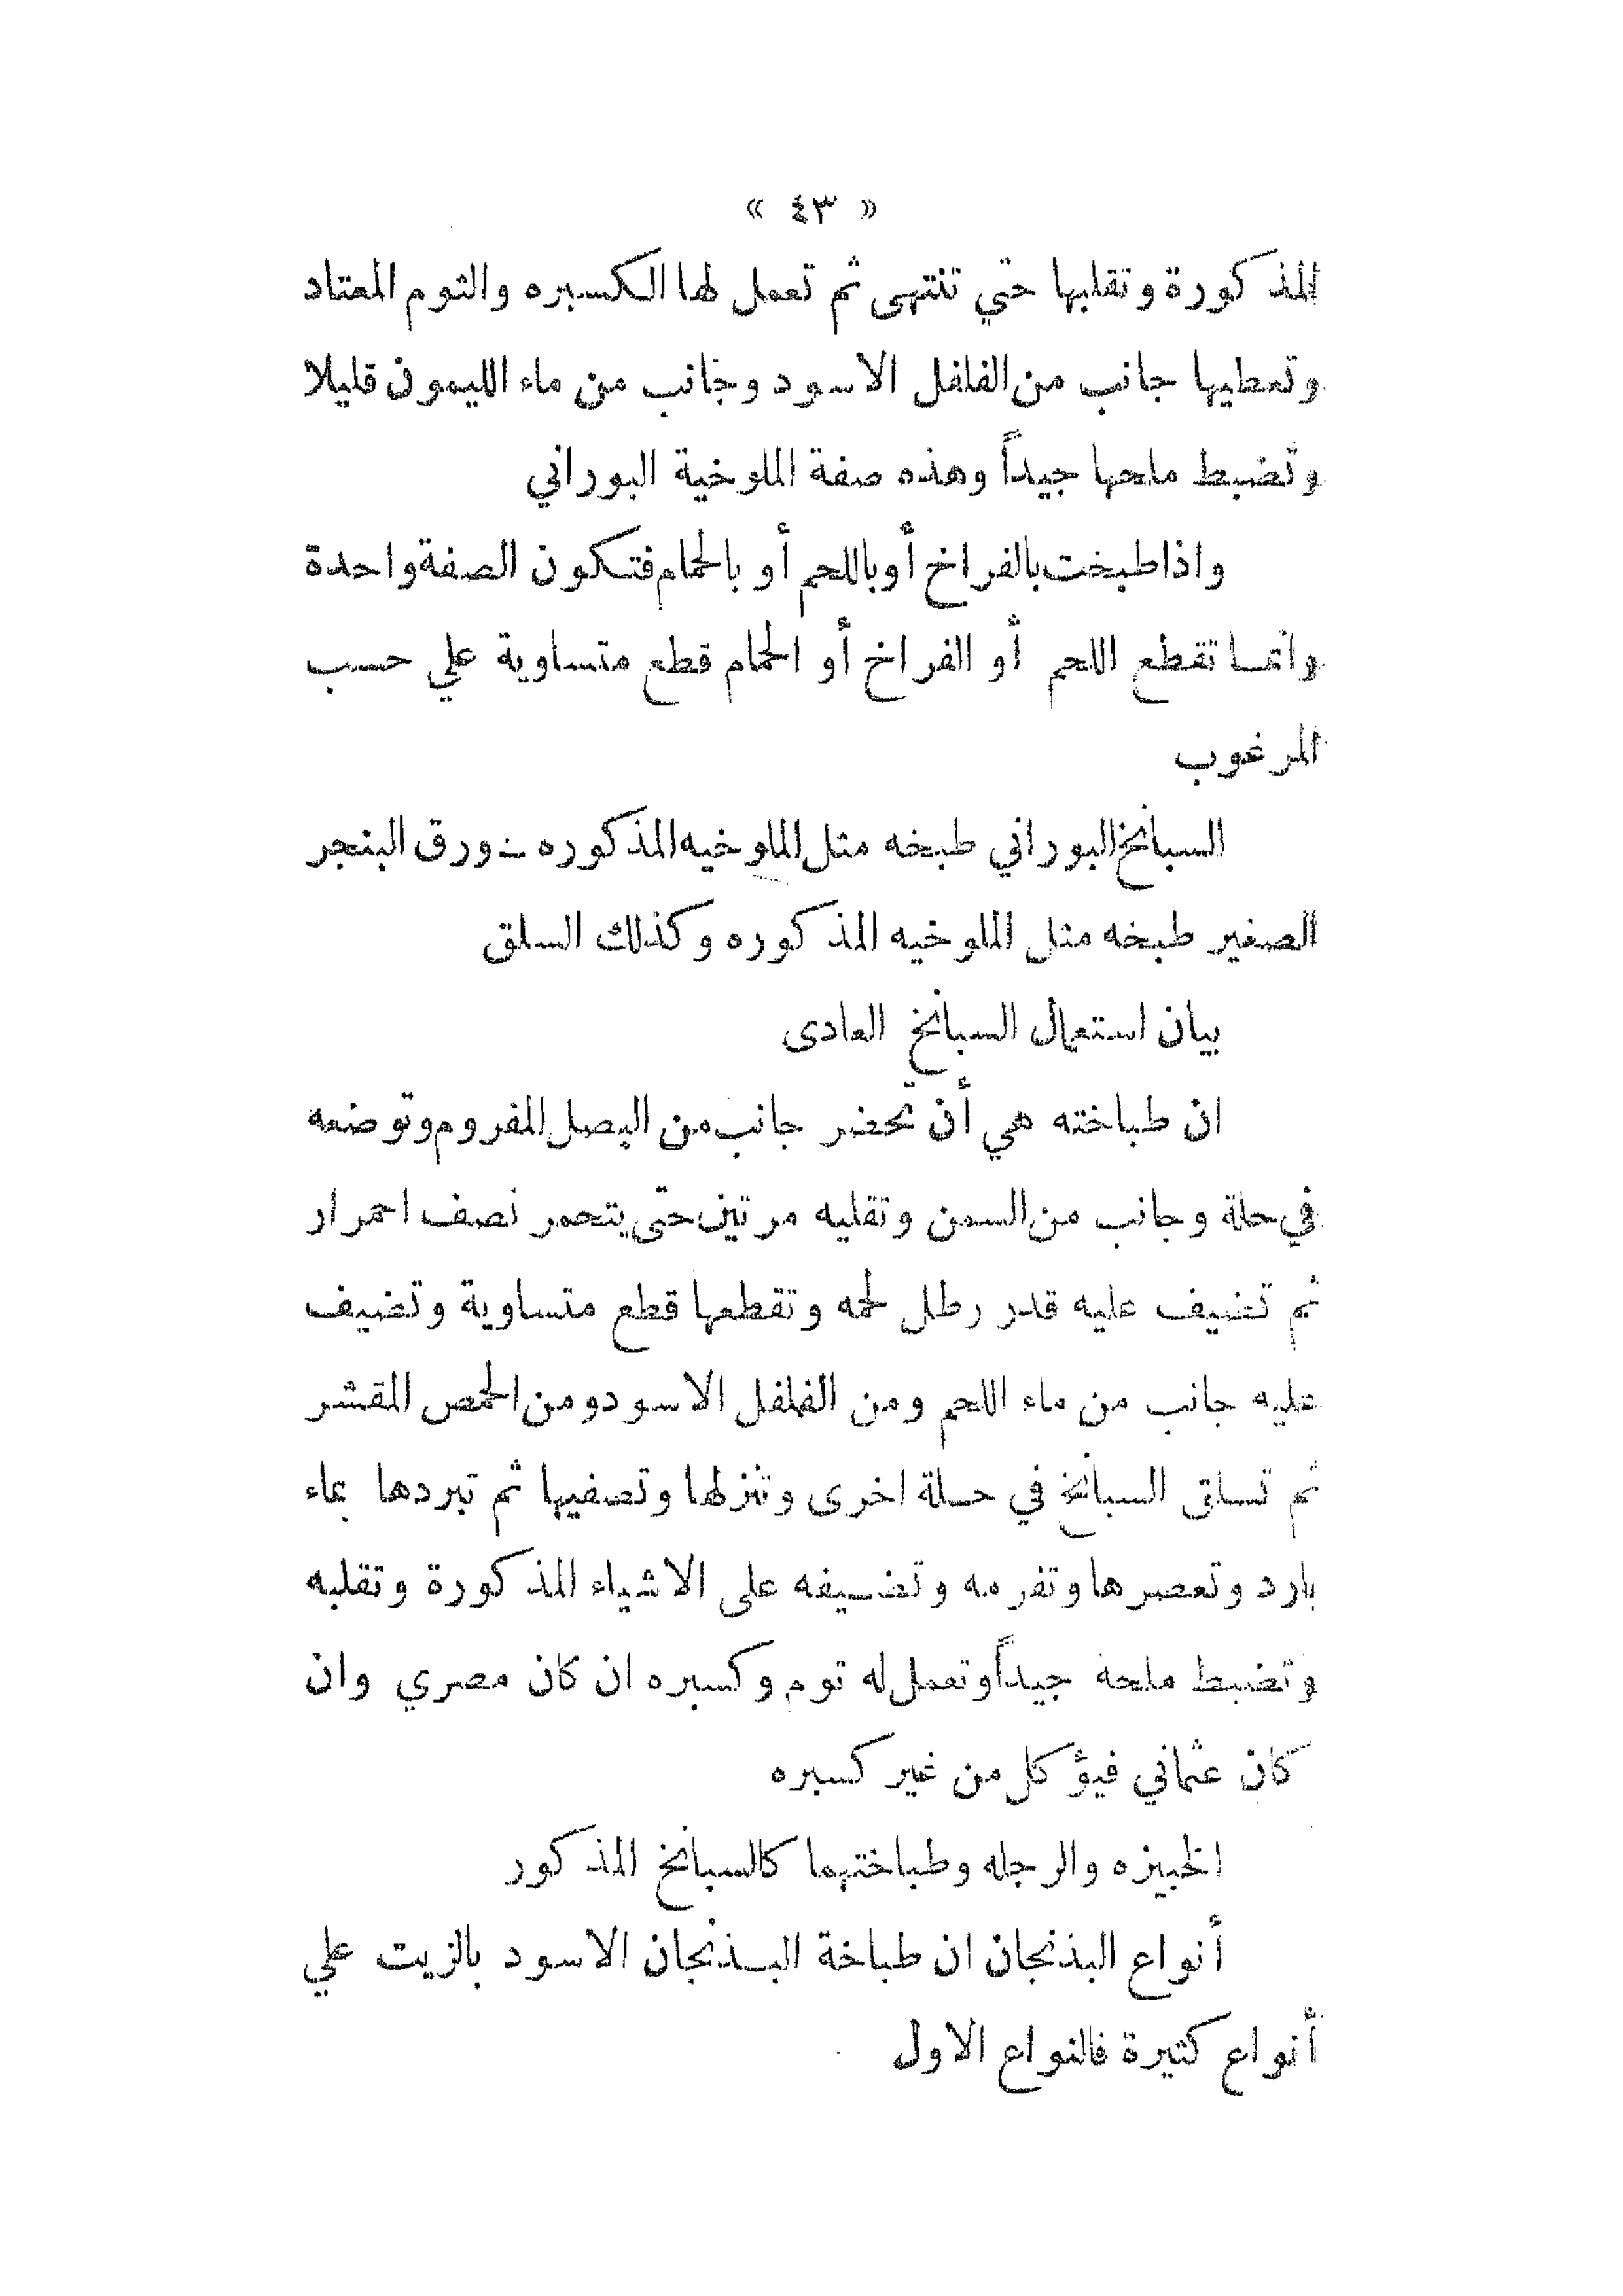 « ٤٣ »
المذكورة وتقلبها حتي تنتهى ثم تعمل لها الكسبره والثوم المعتاد
وتعطيها جانب من الفلفل الاسود وجانب من ماء الليمون قليلا
وتضبط ملحها جيداً وهذه صفة الملوخية البوراني
واذا طبخت بالفراخ أو باللحم أو بالحمام فتكون الصفة واحدة
وانما تقطع اللحم أو الفراخ أو الحمام قطع متساوية علي حسب
المرغوب
السبانخ البوراني طبخه مثل الملوخيه المذكوره – ورق البنجر
الصغير طبخه مثل الملوخيه المذكوره وكذلك السلق
بيان استعمال السبانخ العادى
ان طباخته هي أن تحضر جانب من البصل المفروم وتوضعه
في حلة وجانب من السمن وتقليه مرتين حتى يتحمر نصف احمرار
ثم تضيف عليه قدر رطل لحمه وتقطعها قطع متساوية وتضيف
عليه جانب من ماء اللحم ومن الفلفل الاسود ومن الحمص المقشر
ثم تسلق السبانخ في حلة اخرى وتنزلها وتصفيها ثم تبردها بماء
بارد وتعصرها وتفرمه وتضيفه على الاشياء المذكورة وتقلبه
وتضبط ملحه جيداً وتعمل له توم وكسبره ان كان مصري وان
كان عثماني فيؤكل من غير كسبره
الخبيزه والرجله وطباختهما كالسبانخ المذكور
أنواع البذنجان ان طباخة البذنجان الاسود بالزيت علي
أنواع كثيرة فالنواع الاول